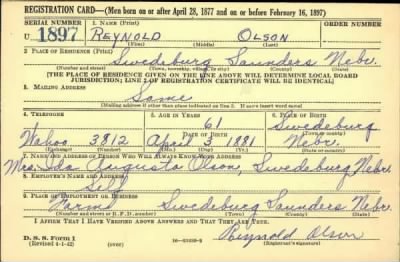 REGISTRATION CARD—(Men born on or after April 28, 1877 and on or before February 16, 1897)
SERIAL NUMBER 1. NAME (Print) ORDER NUMBER
U 1897 REYNOLD OLSON
(First) (Middle) (Last)
2. PLACE OF RESIDENCE (Print)
Swedeburg Saunders Nebr.
(Number and street) (Town, township, village, or city) (County) (State)
[THE PLACE OF RESIDENCE GIVEN ON THE LINE ABOVE WILL DETERMINE LOCAL BOARD
JURISDICTION; LINE 2 OF REGISTRATION CERTIFICATE WILL BE IDENTICAL]
3. MAILING ADDRESS
Same
(Mailing address if other than place indicated on line 2. If same insert word same)
4. TELEPHONE 5. AGE IN YEARS 6. PLACE OF BIRTH
61 Swedeburg
DATE OF BIRTH (Town or county)
Wahoo 3812 April 3 1881 Nebr.
(Exchange) (Number) (Mo.) (Day) (Yr.) (State or country)
7. NAME AND ADDRESS OF PERSON WHO WILL ALWAYS KNOW YOUR ADDRESS
Mrs. Ida Augusta Olson, Swedeburg Nebr.
8. EMPLOYER'S NAME AND ADDRESS
Self
9. PLACE OF EMPLOYMENT OR BUSINESS
Farm Swedeburg Saunders Nebr.
(Number and street or R. F. D. number) (Town) (County) (State)
I AFFIRM THAT I HAVE VERIFIED ABOVE ANSWERS AND THAT THEY ARE TRUE.
D. S. S. Form 1
(Revised 4-1-42) (over) Reynold Olson
(Registrant's signature)